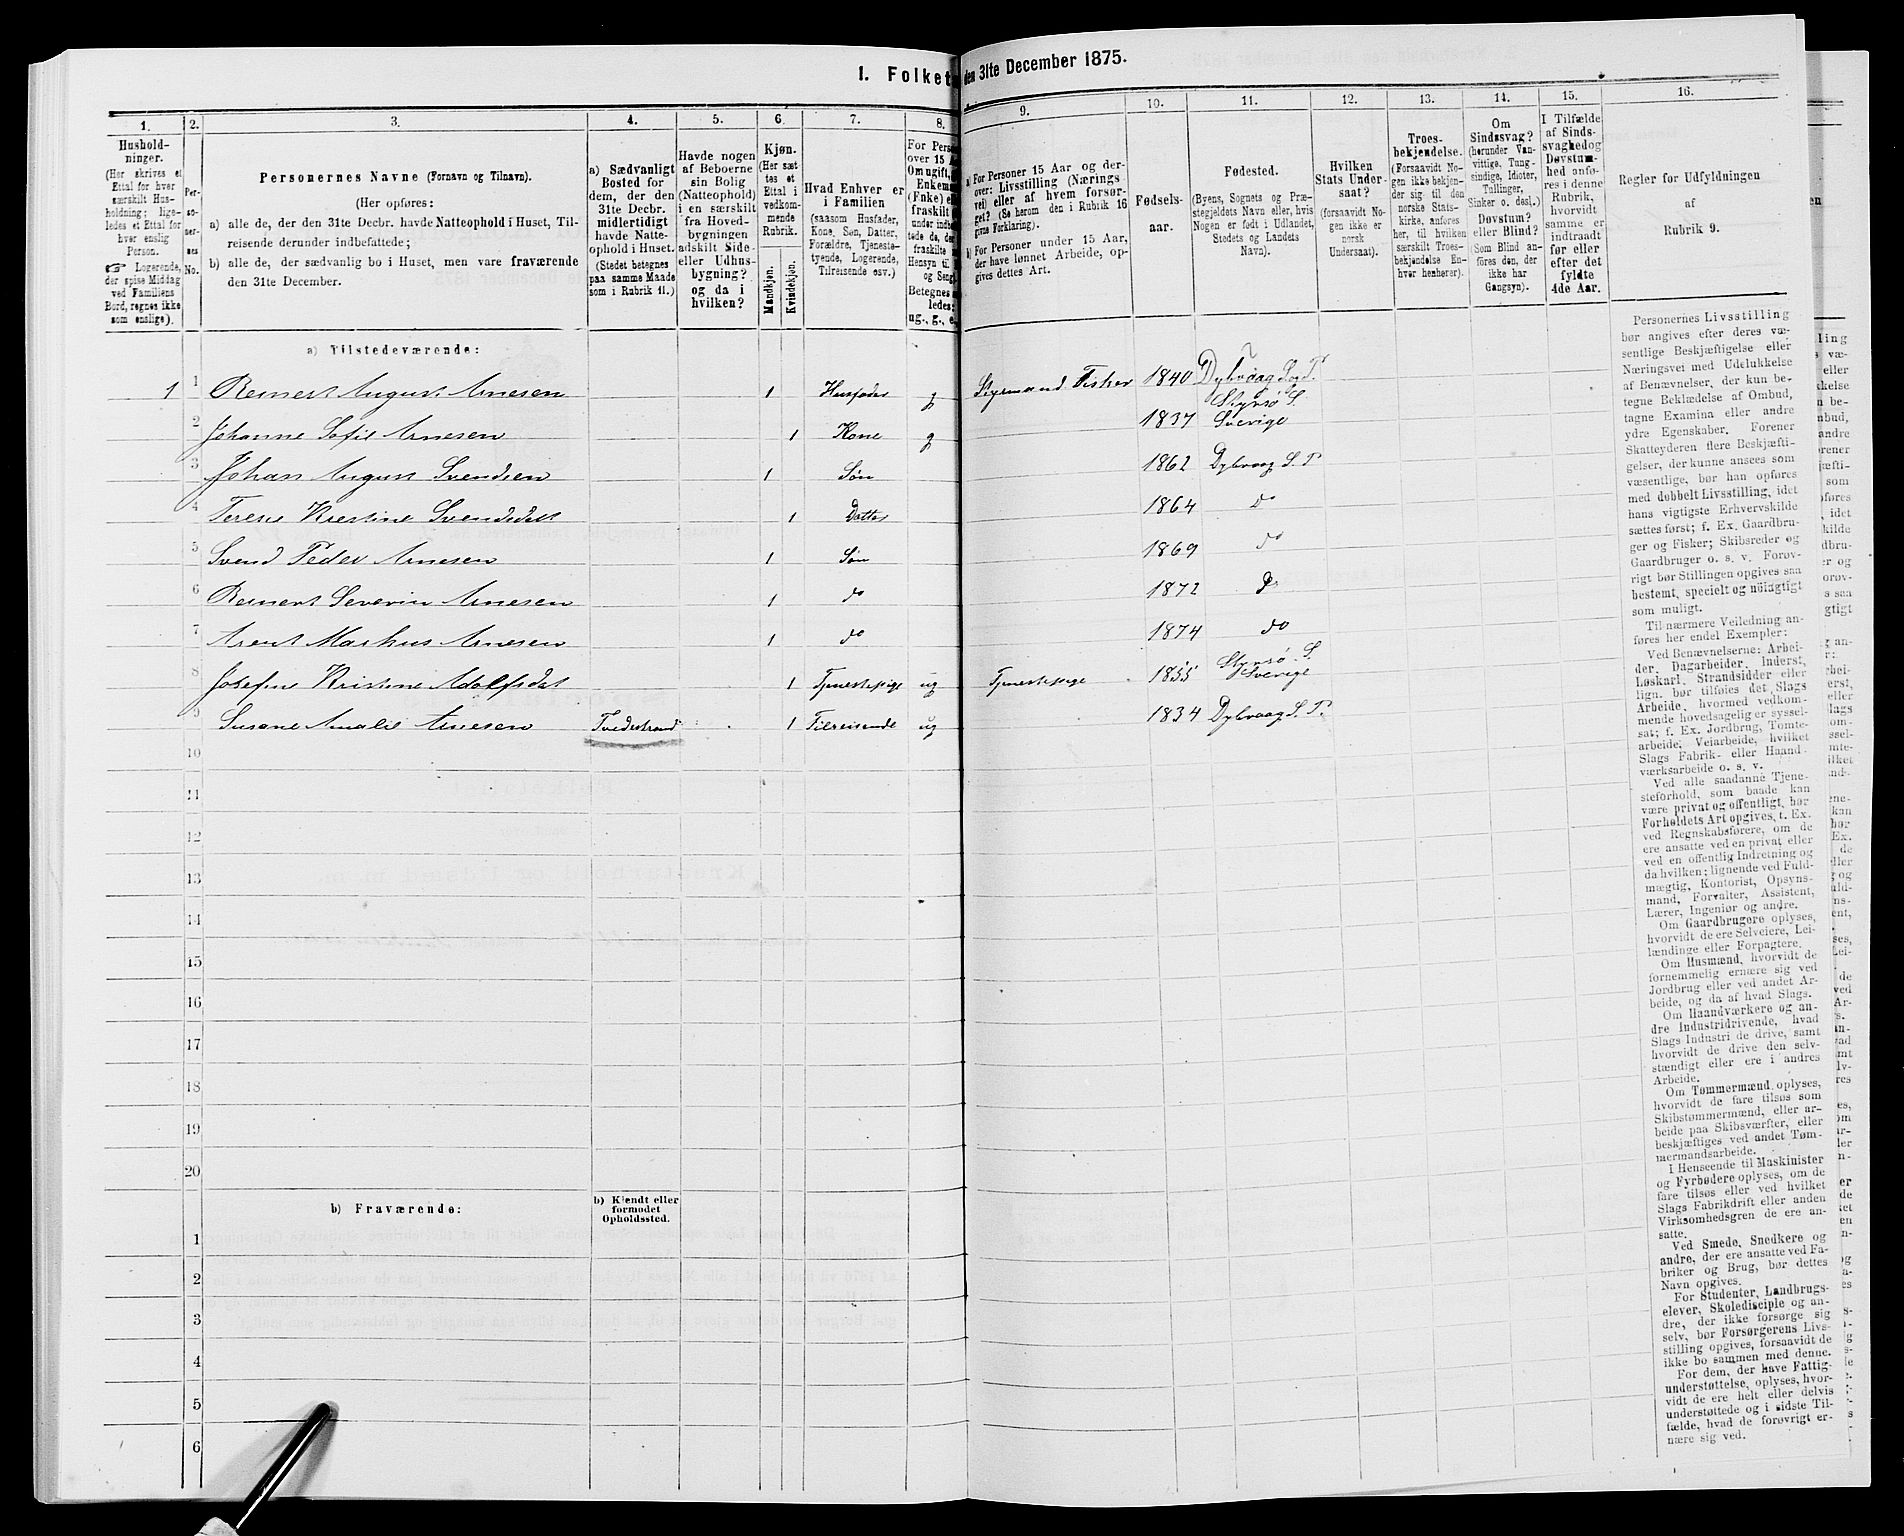 I. Folket
den 31te December 1875.
1.
2.
3.
4.
5.
6.
7.
8.
9.
10.
11.
12.
13.
14.
15.
16.
Hushold-
ninger.
(Her skrives et
Ettal for hver
særskilt Hus-
holdning; lige-
ledes et Ettal for
hver enslig
Person.
☞ Logerende,
der spise Middag
ved Familiens
Bord, regnes ikke
som enslige).
Per-
so-
ner-
nes
No.
Personernes Navne (Fornavn og Tilnavn).
(Her opføres:
a) alle de, der den 31te Decbr. havde Natteophold i Huset, Til-
reisende derunder indbefattede;
b) alle de, der sædvanlig bo i Huset, men vare fraværende
den 31te December.
a) Sædvanligt
Bosted for
dem, der den
31te Decbr.
midlertidigt
havde Natte-
ophold i Huset.
(Stedet betegnes
paa samme Maade
som i Rubrik 11.)
Havde nogen
af Beboerne
sin Bolig
(Natteophold)
i en særskilt
fra Hoved-
bygningen
adskilt Side-
eller Udhus-
bygning?
og da i
hvilken?
Kjøn.
(Her sæt-
tes et
Ettal i
vedkom-
mende
Rubrik.
Mandkjøn.
Kvindekjøn.
Hvad Enhver er
i Familien
(saasom Husfader,
Kone, Søn, Datter,
Forældre, Tjeneste-
tyende, Logerende,
Tilreisende osv.)
For Pers
over 15 A
Om ugift,
Enkem
(Enke) e
fraskilt
under indb
tede de, de
fraskilte
Hensyn til
og Seng
Betegnes
ledes:
ug., g., e.
a) For Personer 15 Aar og der-
over: Livsstilling (Nærings-
vei) eller af hvem forsør-
get? (Se herom den i Rubrik 16
givne Forklaring).
b) For Personer under 15 Aar,
der have lønnet Arbeide, op-
gives dettes Art.
Fødsels-
aar.
Fødested.
(Byens, Sognets og Præ-
stegjeldets Navn eller, hvis
Nogen er født i Udlandet,
Stedets og Landets
Navn).
Hvilken
Stats Under-
saat?
(forsaavidt No-
gen ikke er
norsk
Undersaat).
Troes-
bekjendelse.
(Forsaavidt No-
gen ikke bekjen-
der sig til den
norske Stats-
kirke, anføres
her, til hvilken
særskilt Troes-
bekjendelse En-
hver henhører).
Om
Sindssvag?
(herunder Van-
vittige, Tung-
sindige, Idioter,
Tullinger,
Sinker o. desl.)
Døvstum?
eller Blind?
(Som Blind an-
føres den, der
ikke har
Gangsyn).
I Tilfælde
af Sinds-
svaghed og
Døvstum-
hed anfø-
res i denne
Rubrik,
hvorvidt
samme er
indtraadt
før eller
efter det
fyldte
4de Aar.
Regler for Udfyldningen
af
Rubrik 9.
a) Tilstedeværende:
1 1 Reinert August Arnesen 1 Husfader g Styrmand Fisker 1840 Dybvaag S. P.
2 Johanne Sofie Arnesen 1 Kone g 1837 Styrsø S. Sverige
3 Johan August Svendsen 1 Søn 1862 Dybvaag S. P.
4 Terese Kristine Svendsdatt 1 Datter 1864 do
5 Svend Peder Arnesen 1 Søn 1869 do
6 Reinert Severin Arnesen 1 do 1872 do
7 Arent Markus Arnesen 1 do 1874 do
8 Josefine Kristine Adolfsdat 1 Tjenestepige ug Tjenestepige 1855 Styrsø S. Sverige
9 Susane Amalie Arnesen Tvedestrand 1 Tilreisende ug 1834 Dybvaag S. P.
10
11
12
13
14
15
16
17
18
19
20
b) Fraværende:
b) Kjendt eller
formodet
Opholdssted.
1
2
3
4
5
6
Personernes Livsstilling
bør angives efter deres væ-
sentlige Beskjæftigelse eller
Næringsvei med Udelukkelse
af Benævnelser, der kun be-
tegne Beklædelse af Ombud,
tagne Examina eller andre
ydre Egenskaber. Forener
Skatteyderen flere Beskjæfti-
gelser, der kunne ansees som
væsentlige, bør han opføres
med dobbelt Livsstilling, idet
hans vigtigste Erhvervskilde
sættes først; f. Ex. Gaardbru-
ger og Fisker; Skibsreder og
Gaardbruger o. s. v. Forøv-
rigt bør Stillingen opgives saa
bestemt, specielt og nøiagtigt
som muligt.
Til nærmere Veiledning an-
føres her endel Exempler:
Ved Benævnelserne: Arbei-
der, Dagarbeider, Inderst,
Løskarl, Strandsidder eller
lign. bør tilføies det Slags
Arbeide, hvormed vedkom-
mende hovedsagelig er syssel-
sat; f. Ex. Jordbrug, Tomte-
arbeide, Veiarbeide, hvilket
Slags Fabrik- eller Haand-
værksarbeide o. s. v.
Ved alle saadanne Tjene-
steforhold, som baade kan
være privat og offentligt, bør
Forholdets Art opgives, t. Ex.
ved Regnskabsførere, om de
ere ansatte ved en privat eller
ved en offentlig Indretning og
da hvilken; lignende ved Fuld-
mægtig, Kontorist, Opsyns-
mand, Forvalter, Assistent,
Lærer, Ingeniør og andre.
Om Gaardbrugere oplyses,
hvorvidt de ere Selveiere, Lei-
lændinge eller Forpagtere.
Om Husmænd, hvorvidt de
fornemmelig ernære sig ved
Jordbrug eller ved andet Ar-
beide, og da af hvad Slags.
Om Haandværkere og an-
dre Industridrivende, hvad
Slags Industri de drive, samt
hvorvidt de drive den selv-
stændigt eller ere i andres
Arbeide.
Om Tømmermænd oplyses,
hvorvidt de fare tilsøs som
Skibstømmermænd, eller ar-
beide paa Skibsværfter, eller
beskjæftiges ved andet Tøm-
mermandsarbeide.
I Henseende til Maskinister
og Fyrbødere oplyses, om de
fare tilsøs eller ved hvilket
Slags Fabrikdrift eller anden
Virksomhedsgren de ere an-
satte.
Ved Smede, Snedkere og
andre, der ere ansatte ved Fa-
briker og Brug, bør dettes
Navn opgives.
For Studenter, Landbrugs-
elever, Skoledisciple og an-
dre, der ikke forsørge sig
selv, bør Forsørgerens Livs-
stilling opgives, forsaavidt de
ikke bo sammen med denne.
For dem, der have Fattig-
understøttelse, oplyses, hvor-
vidt de ere helt eller delvis
understøttede og i sidste Til-
fælde, hvad de forøvrigt er-
nære sig ved.